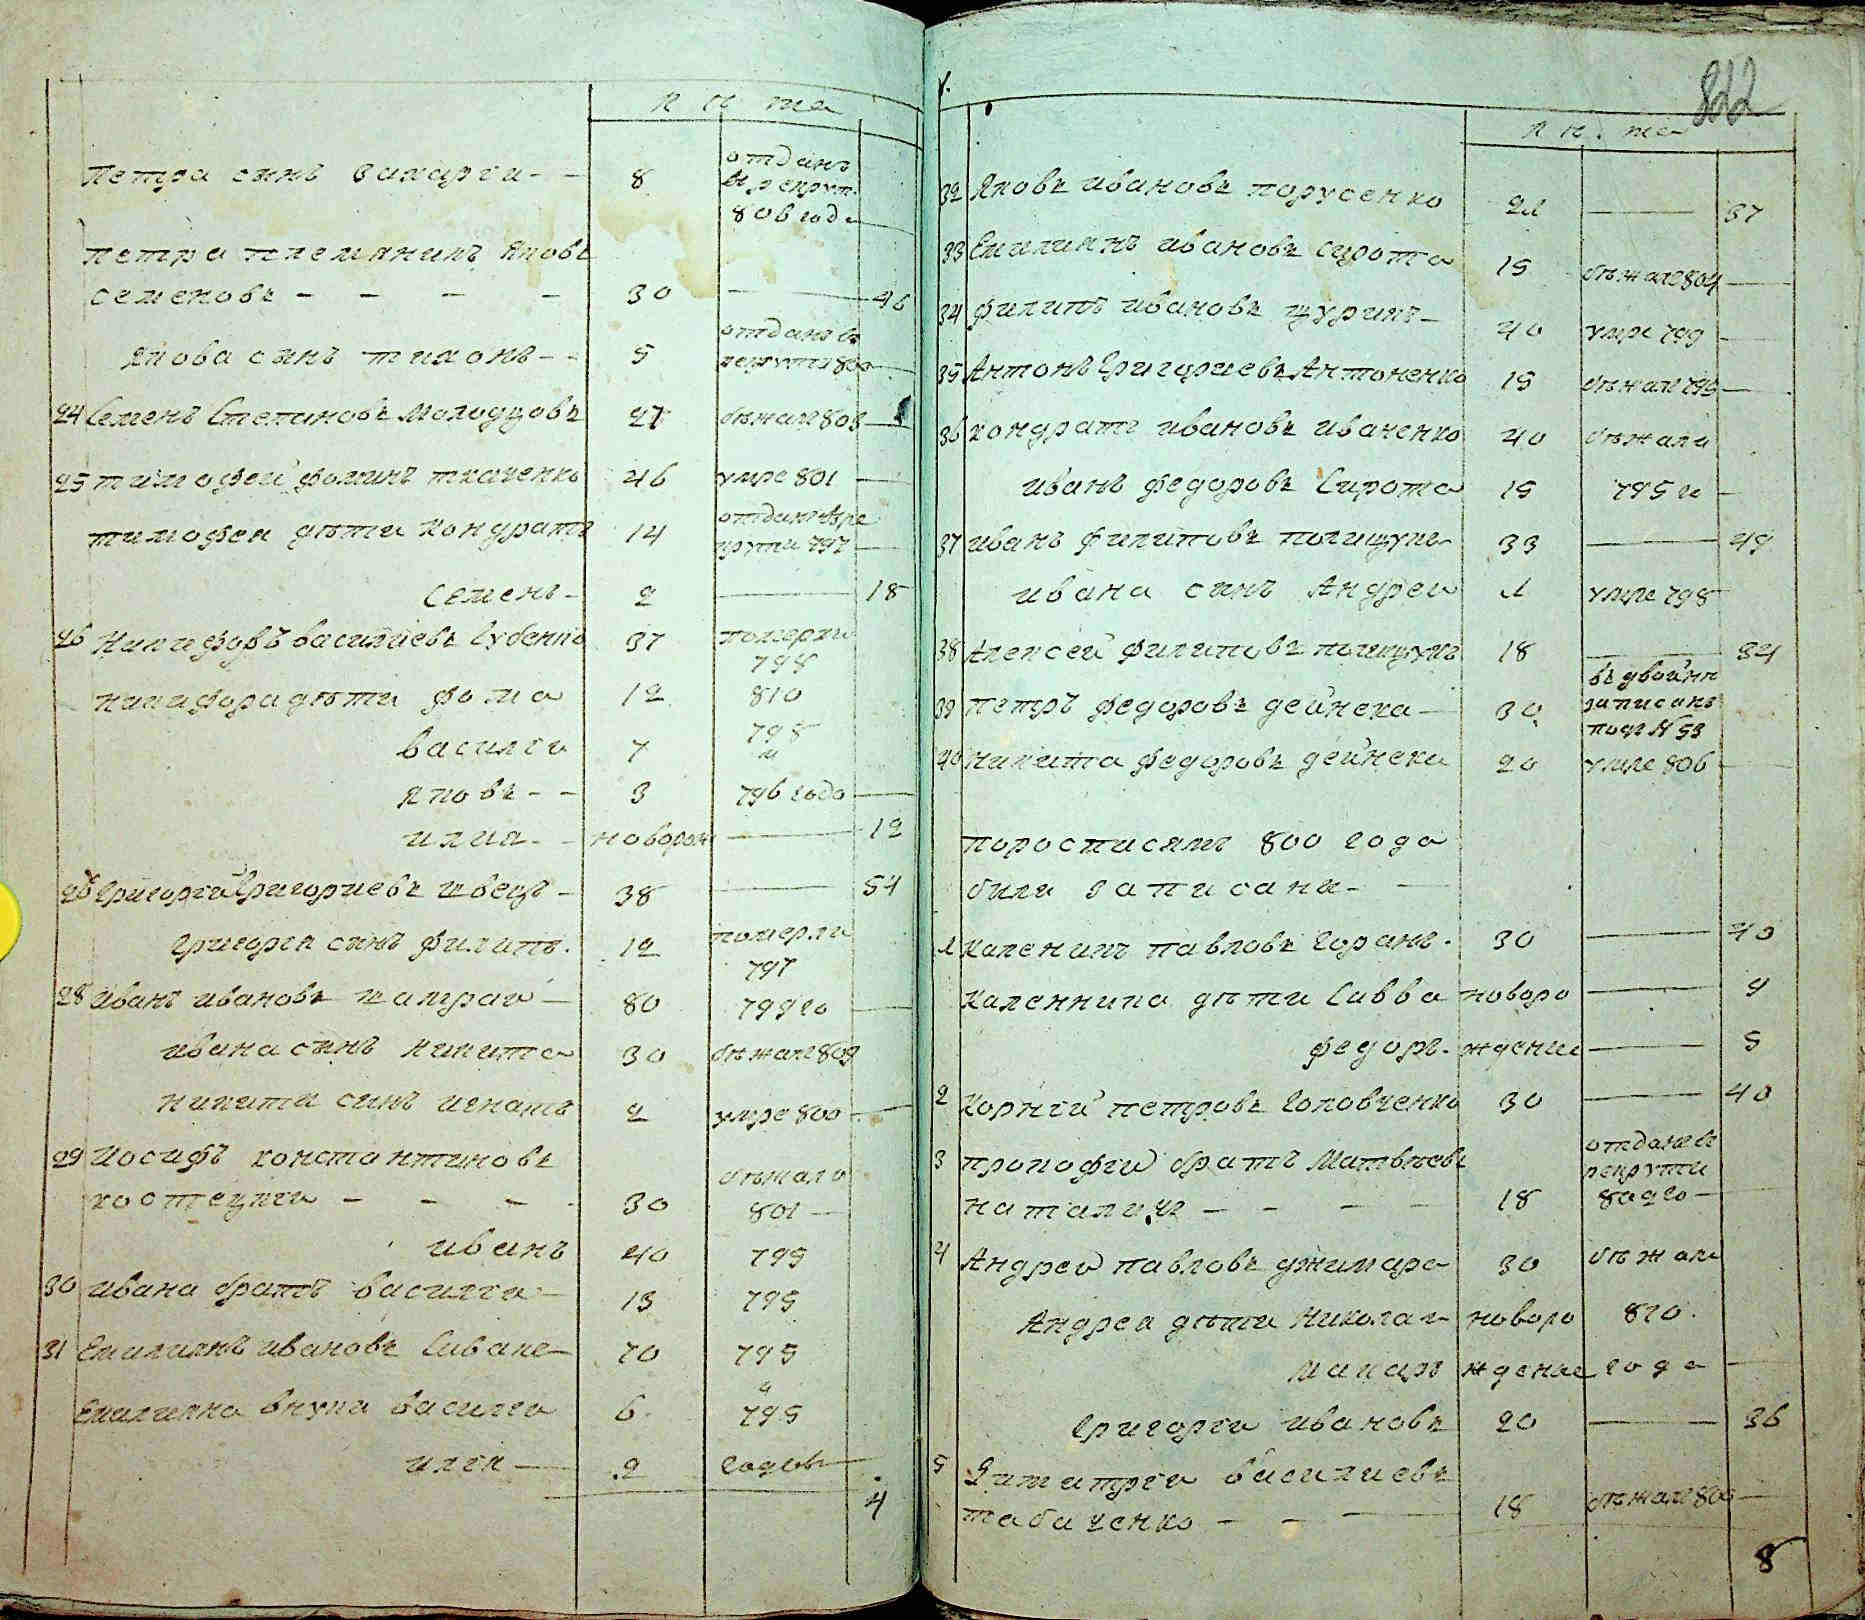 лѣта
Петра сынъ Захарги - - 8 отданъ
в рекрут.
806 года
Петра племянникъ Яковъ
Семеновъ - - - - 30 — 46
Якова сынъ Тихонъ - - 5 отданъ въ
рекруты 80
24 Семенъ Степановъ Молодцовъ 27 бѣжалъ 808 —
25 Тимофей Фоминъ Ткаченко 46 умре 801 —
Тимофея дѣти Кондратъ 14 отданъ вре
круты 797 —
Семенъ - 2 — 18
26 Никифоръ Василиевъ Губенко 37 померли
798
Никифора дѣти Фома 12 810
Василги 7 798
и
Яковъ - - 3 796 годо —
Илия - - новорож — 12
26 Григоргий Григориевъ Швецъ - 38 — 54
Григоргя сынъ Филипъ. 12 померли
797
28 Иванъ Ивановъ Шамрай — 80 799 го —
Ивана сынъ Никита 30 бѣжалъ 809
Никиты сынъ Игнатъ 2 умре 800 —
29 Иосифъ Константиновъ
Костецки - - - - 30 бѣжало
801 —
Иванъ 40 795
30 Ивана братъ Василги — 13 795
31 Емилиянъ Ивановъ Сиваке — 70 795
и
Емилияна внуки Василги 6. 795
Илгя — 2 годовъ —
4
822
лѣта
32 Яковъ Ивановъ Порусенко 21 — 37
33 Емилиянъ Ивановъ Сирота 15 бѣжалъ 804 —
34 Филипъ Ивановъ Цурикъ — 40 умре 799 —
35 Антонъ Григориевъ Антоненко 15 бѣжалъ 795 —
36 Кондратъ Ивановъ Иваненко 40 бѣжали
Иванъ Федоровъ Сирота 15 795 го —
37 Иванъ Филиповъ Полищукъ 33 — 49
Ивана сынъ Андрей 1 умре 798
38 Алексей Филиповъ Полищукъ 18 — 34
39 Петръ Федоровъ Дейнека — 30 въ двойнѣ
записанъ
подъ N 53
40 Никита Федоровъ Дейнека 20 умре 806 —
По росписямъ 800 года
были записаны - —
1 Каленикъ Павловъ Горанъ. 30 — 40
Каленника дѣти Савва новоро — 9
Федоръ. ждение — 5
2 Корнги Петровъ Головченко 30 — 40
3 Прокофги братъ Матвѣевъ отданъ в
рекруты
Наталичъ - - - — 18 802 го —
4 Андрей Павловъ Джимара 30 бѣжали
Андрея дѣти Николай новоро 810.
Макаръ ждение года —
Григорги Ивановъ 20 — 36
5 Димитрги Василиевъ
Табаченко - - - — 18 бѣжалъ 80 —
8